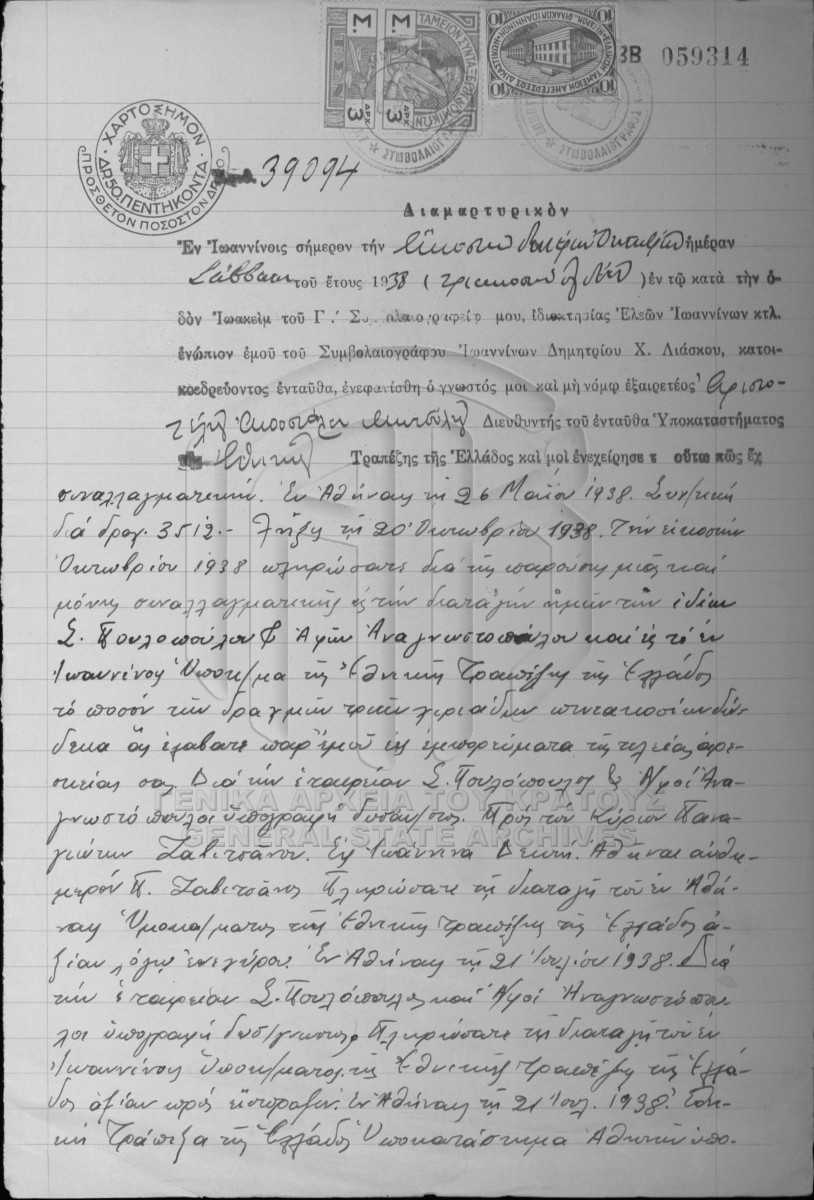 Μ. ΤΑΜΕΙΟΝ ΣΥΝΤΑΞΕΩΝ ΝΟΜΙΚΩΝ Μ.
3 ΔΡΧ. 3 ΔΡΧ.
10 10
ΣΥΜΒΟΛΑΙΟΓΡΑΦΟΣ
ΣΥΜΒΟΛΑΙΟΓΡΑΦΟΣ
3Β 059314
ΧΑΡΤΟΣΗΜΟΝ
ΔΡ.50 ΠΕΝΤΗΚΟΝΤΑ
ΠΡΟΣΘΕΤΟΝ ΠΟΣΟΣΤΟΝ ΔΡ.
39094
Διαμαρτυρικὸν
Ἐν Ἰωαννίνοις σήμερον τὴν εἰκοστὴν Ὀκτωβρίου ἡμέραν
Σάββατον τοῦ ἔτους 1938 (τριακοστὸν ) ἐν τῷ κατὰ τὴν ὁ-
δὸν Ἰωακεὶμ τοῦ Γ.΄ Συμβολαιογραφείῳ μου, ἰδιοκτησίας Ἐλεῶν Ἰωαννίνων κτλ.
ἐνώπιον ἐμοῦ τοῦ Συμβολαιογράφου Ἰωαννίνων Δημητρίου Χ. Λιάσκου, κατοι-
κοεδρεύοντος ἐνταῦθα, ἐνεφανίσθη ὁ γνωστός μοι καὶ μὴ νόμῳ ἐξαιρετέος Ἀριστο-
τέλης Διευθυντής τοῦ ἐνταῦθα Ὑποκαταστήματος
Ἐθνικῆς Τραπέζης τῆς Ἑλλάδος καὶ μοὶ ἐνεχείρησε τ οὕτω πῶς ἔχ
συναλλαγματικήν. Ἐν Ἀθήναις τῇ 26 Μαΐου 1938. Συν/τικὴ
διὰ δραχ. 3512.- Λῆξις τῇ 20 Ὀκτωβρίου 1938. Τὴν εἰκοστὴν
Ὀκτωβρίου 1938 πληρώσατε διὰ τῆς παρούσης μιᾶς καὶ
μόνης συναλλαγματικῆς εἰς τὴν διαταγὴν ἡμῶν τῶν ἰδίων
Σ. Πουλοπούλου & Ἀφῶν Ἀναγνωστοπούλου καὶ εἰς τὸ ἐν
Ἰωαννίνοις Ὑποκ/μα τῆς Ἐθνικῆς Τραπέζης τῆς Ἑλλάδος
τὸ ποσὸν τῶν δραχμῶν τριῶν χιλιάδων πεντακοσίων δώ-
δεκα ἃς ἐλάβατε παρ' ἐμοῦ εἰς ἐμπορεύματα τῆς τελείας ἀρε-
σκείας σας. Διὰ τὴν ἑταιρείαν Σ. Πουλόπουλος & Ἀφοὶ Ἀνα-
γνωστόπουλοι ὑπογραφὴ δυσαν/στος. Πρὸς τὸν Κύριον Πανα-
γιώτην Ζαβιτσάνον. Εἰς Ἰωάννινα Δεκτή. Ἀθῆναι αὐθη-
μερὸν Π. Ζαβιτσάνος Πληρώσατε τῇ διαταγῇ τοῦ ἐν Ἀθή-
ναις Ὑποκα/ματος τῆς Ἐθνικῆς Τραπέζης τῆς Ἑλλάδος ἀ-
ξίαν λόγῳ ἐνεχύρου. Ἐν Ἀθήναις τῇ 21 Ἰουλίου 1938. Διὰ
τὴν ἑταιρείαν Σ. Πουλόπουλος καὶ Ἀφοὶ Ἀναγνωστόπου-
λοι ὑπογραφὴ δυσ/γνωστος Πληρώσατε τῇ διαταγῇ τοῦ ἐν
Ἰωαννίνοις Ὑποκ/ματος τῆς Ἐθνικῆς Τραπέζης τῆς Ἑλλά-
δος ἀξίαν πρὸς εἴσπραξιν. Ἐν Ἀθήναις τῇ 21 Ἰουλ. 1938. Ἐθνι-
κὴ Τράπεζα τῆς Ἑλλάδος Ὑποκατάστημα Ἀθηνῶν ὑπο-
ΓΕΝΙΚΑ ΑΡΧΕΙΑ ΤΟΥ ΚΡΑΤΟΥΣ
GENERAL STATE ARCHIVES